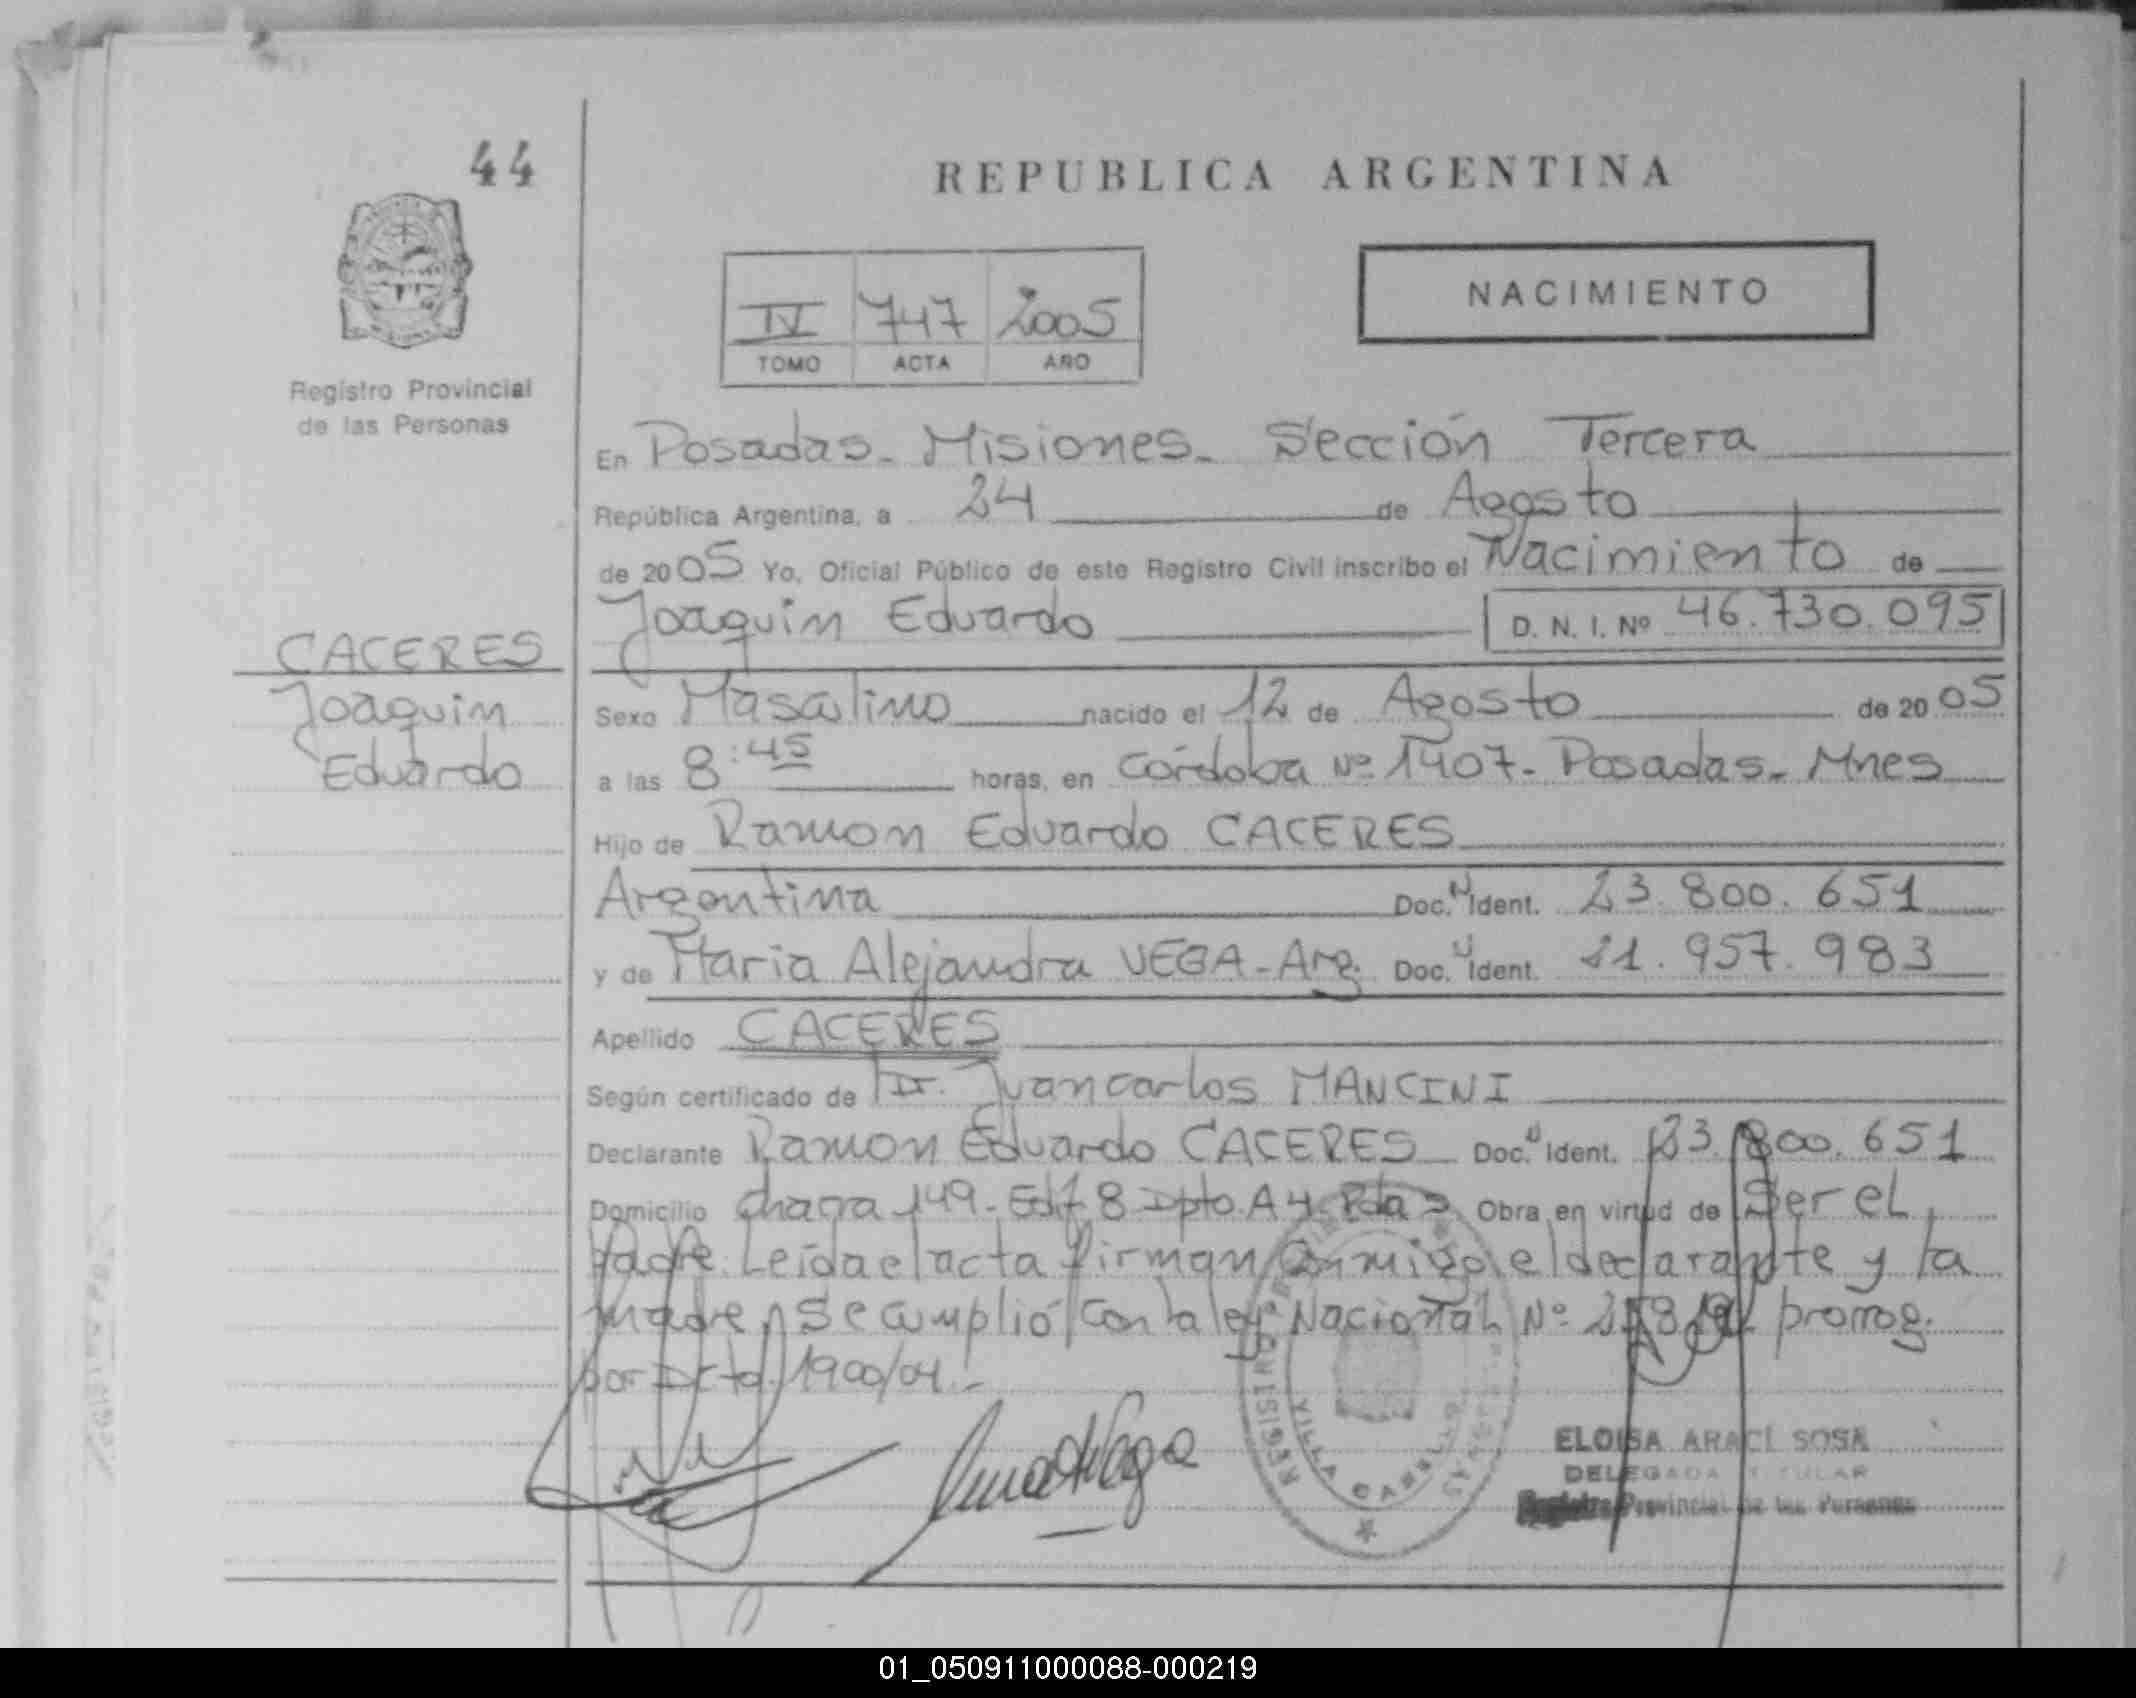 44
REPUBLICA ARGENTINA
NACIMIENTO
IV 747 2005
TOMO ACTA AÑO
Registro Provincial
de las Personas
En Posadas - Misiones - Sección Tercera
República Argentina, a 24 de Agosto
de 2005 Yo, Oficial Público de este Registro Civil inscribo el Nacimiento de
Joaquin Eduardo D. N. I. Nº 46.730.095
CACERES
Joaquin
Eduardo
Sexo Masculino nacido el 12 de Agosto de 2005
a las 8:45 horas, en Córdoba Nº 1407 - Posadas - Mnes
Hijo de Ramon Eduardo CACERES
Argentina Doc. N Ident. 23.800.651
y de Maria Alejandra VEGA - Arg. Doc. Ident. 21.957.983
Apellido CACERES
Según certificado de Dr. Juan Carlos MANCINI
Declarante Ramon Eduardo CACERES Doc. Ident. 23.800.651
Domicilio chacra 149 - Edif 8 Dpto. A 4 Pdas Obra en virtud de Ser el
padre. Leída el acta firman conmigo el declarante y la
madre, se cumplió con la ley Nacional Nº prorrog.
por Dcto. 1900/04.-
REGISTRO PROVINCIAL DE LAS PERSONAS
VILLA CABELLO
ELOISA ARACÍ SOSA
DELEGADA TITULAR
Registro Provincial de las Personas
01_050911000088-000219